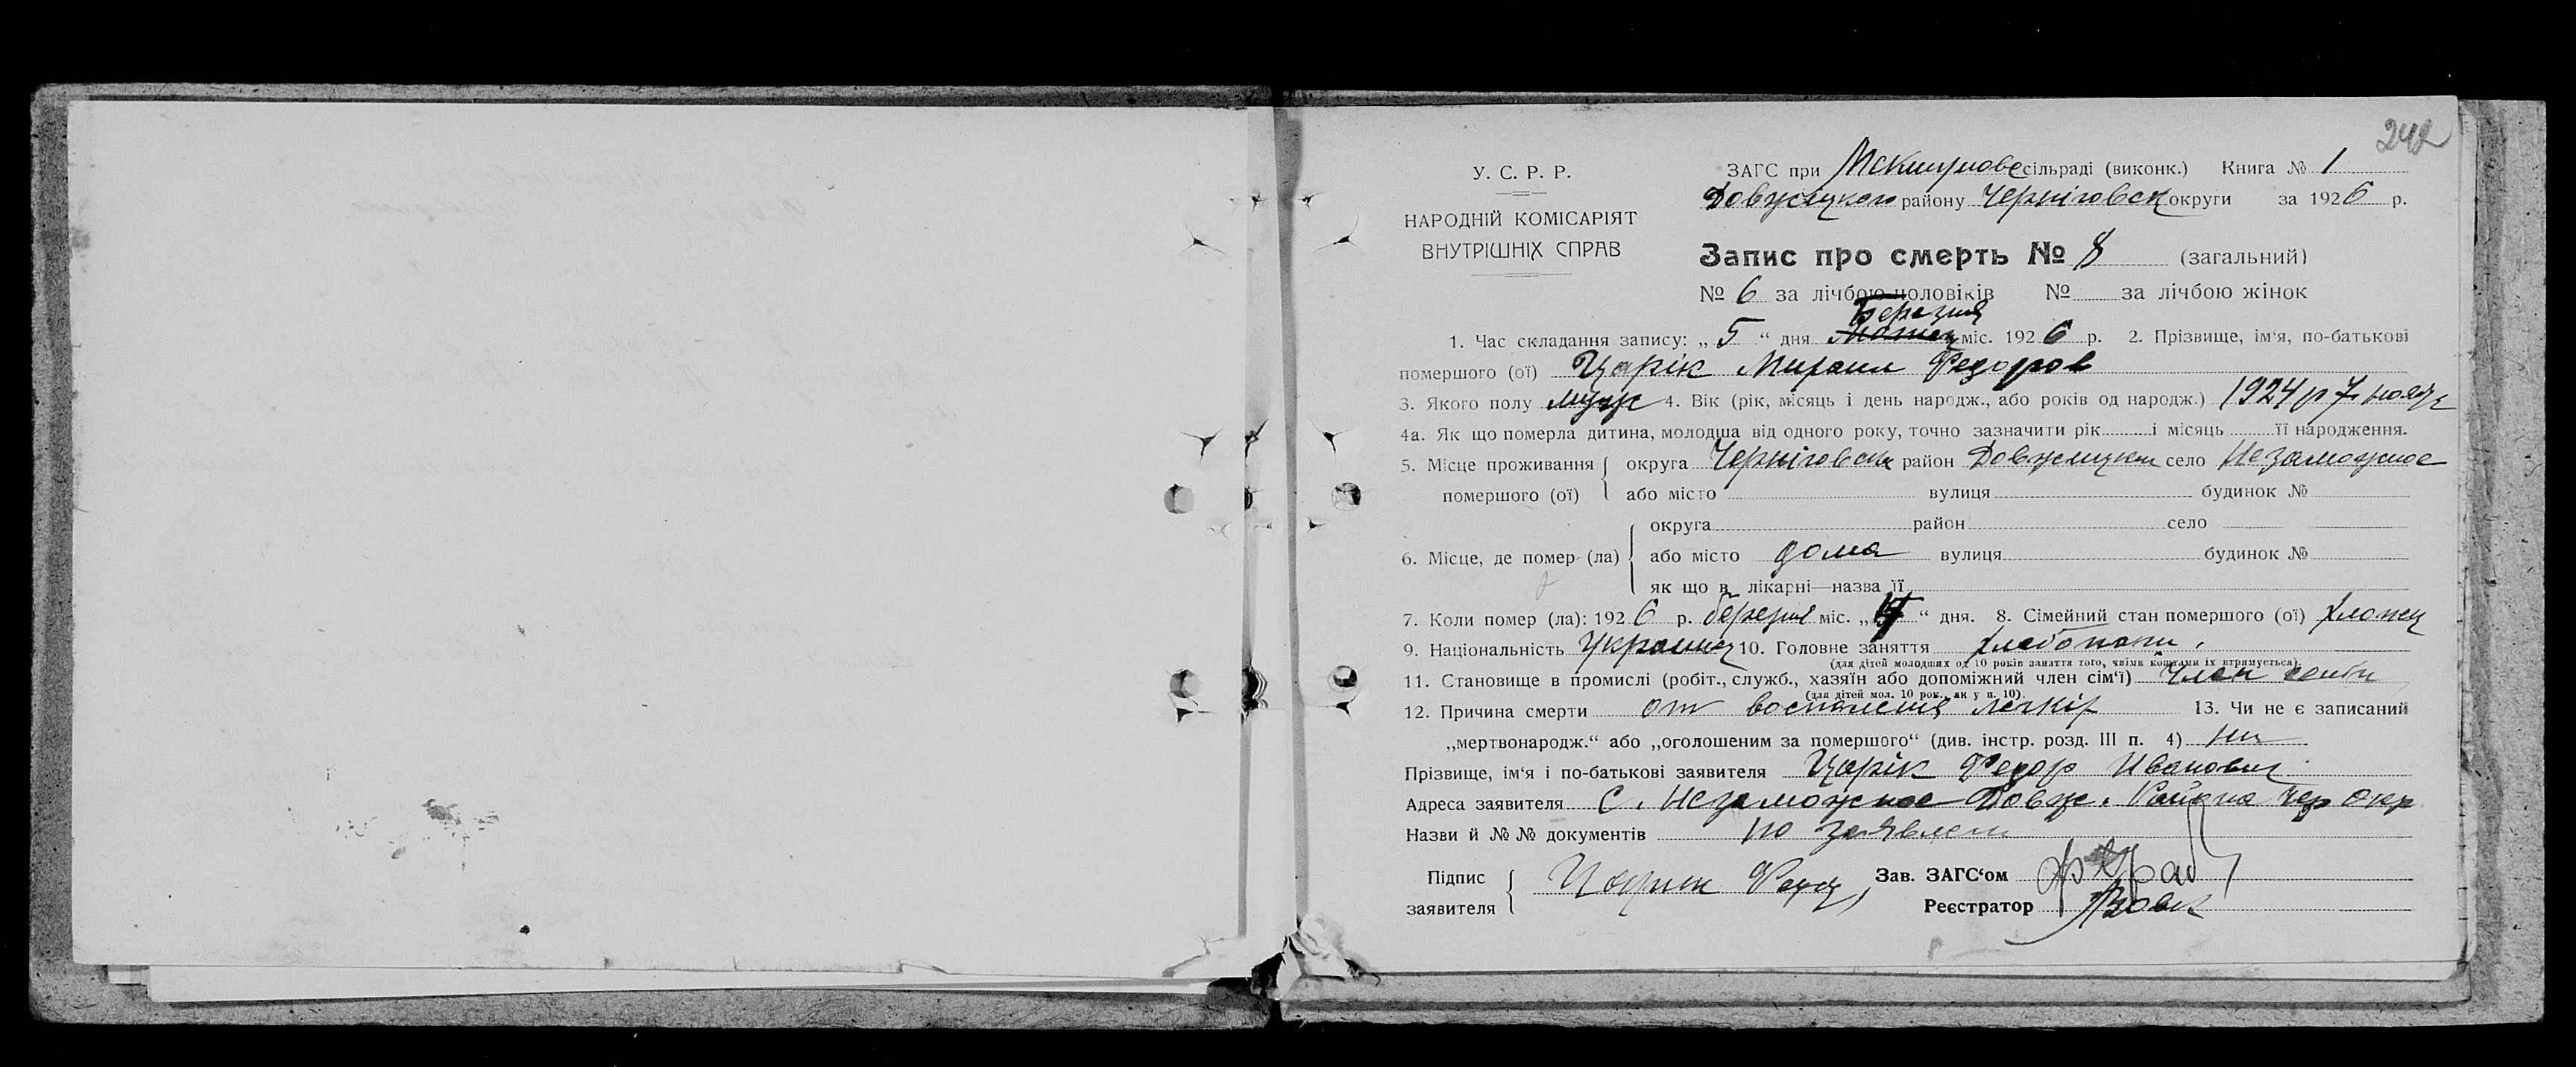 242
У. С. Р. Р.
НАРОДНІЙ КОМІСАРІЯТ
ВНУТРІШНІХ СПРАВ
ЗАГС при сільраді (виконк.) Книга № 1
Довжицкого району Черніговск округи за 1926 р.
Запис про смерть № 8 (загальний)
№ 6 за лічбою чоловіків № за лічбою жінок
Березня
1. Час складання запису: „ 5 “ дня міс. 1926 р. 2. Прізвище, ім'я, по-батькові
помершого (ої) Царік Михаил Федоров
3. Якого полу муж 4. Вік (рік, місяць і день народж., або років од народж.) 1924 р 7 нояб
4а. Як що померла дитина, молодша від одного року, точно зазначити рік і місяць її народження.
5. Місце проживання помершого (ої) округа Черніговск район Довжицки село Незаможное
або місто вулиця будинок №
6. Місце, де помер (ла) округа район село
або місто дома вулиця будинок №
як що в лікарні—назва її
7. Коли помер (ла): 1926 р. березня міс. „ “ дня. 8. Сімейний стан помершого (ої) хлопец
9. Національність Украинец 10. Головне заняття
(для дітей молодших од 10 років заняття того, чиїми коштами їх втримується).
11. Становище в промислі (робіт., служб., хазяїн або допоміжний член сім'ї) член семьи
(для дітей мол. 10 рок., як у п. 10).
12. Причина смерти от воспаления легкіх 13. Чи не є записаний
„мертвонародж.“ або „оголошеним за помершого“ (див. інстр. розд. III п. 4) ни
Прізвище, ім'я і по-батькові заявителя Царік Федор Иванович
Адреса заявителя С. Незаможное Довж. Района Чер Окр
Назви й №№ документів по заявлен
Підпис заявителя Царик Зав. ЗАГС'ом
Реєстратор